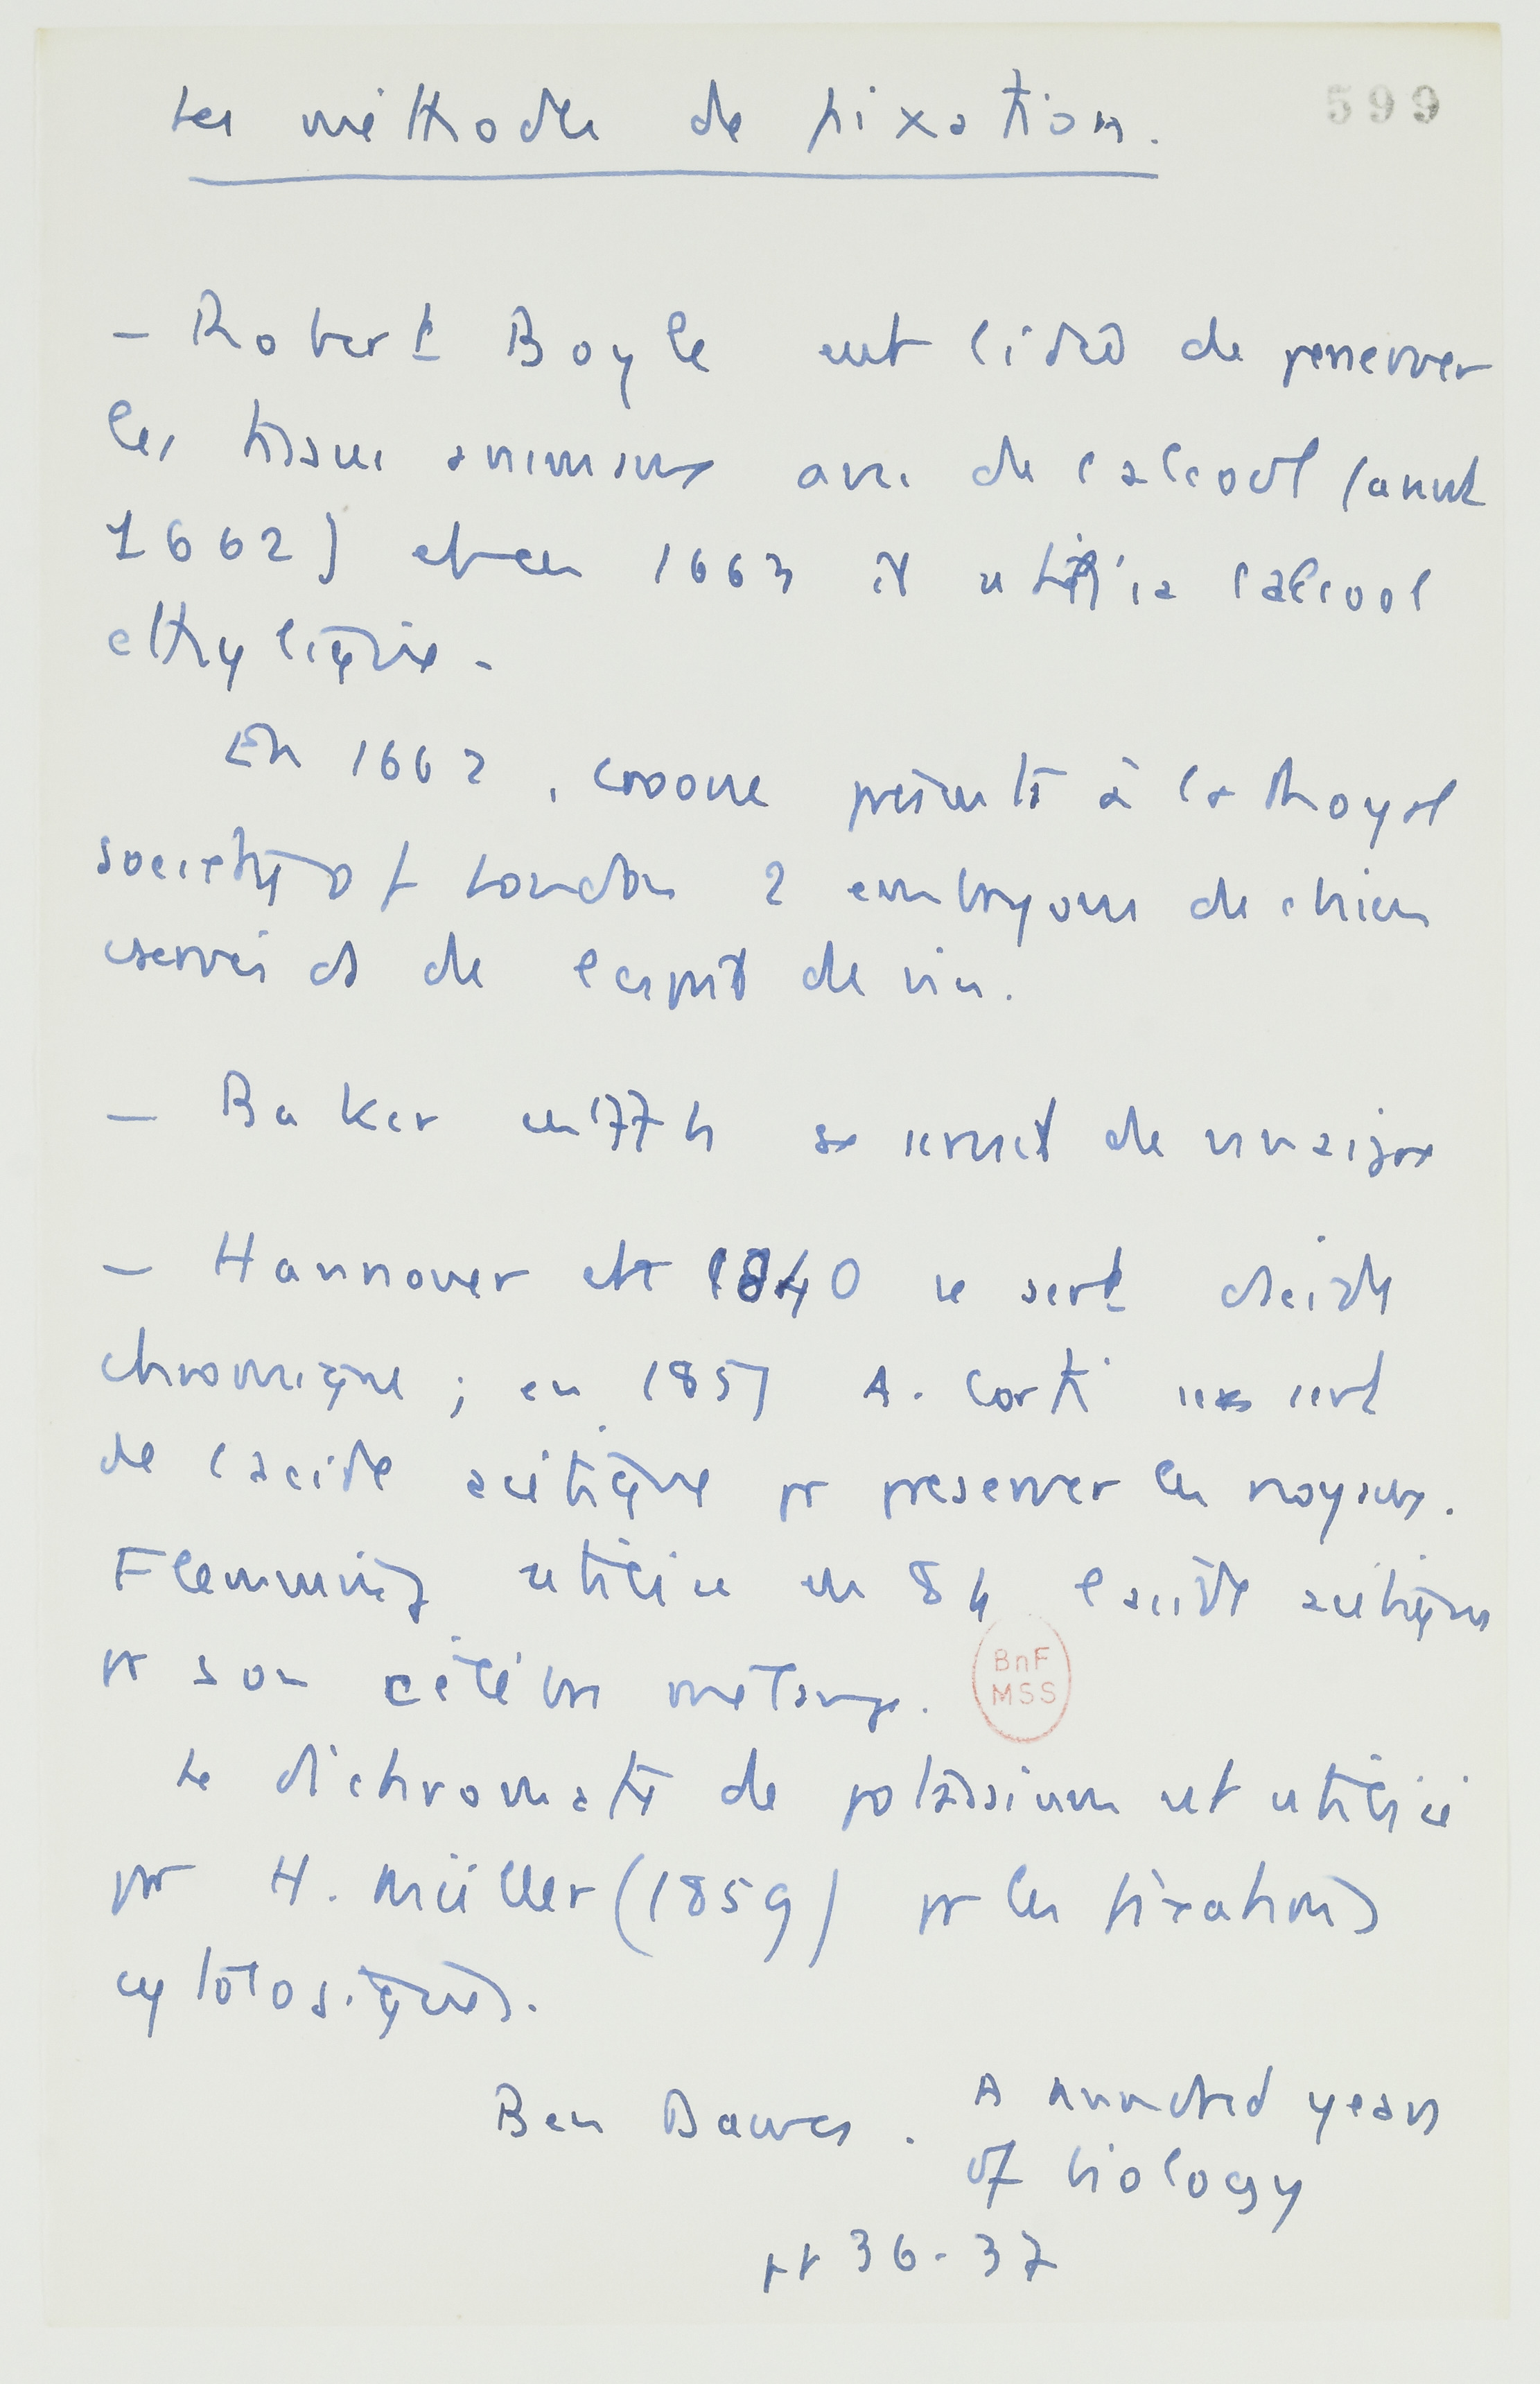 Les méthodes de fixation.
599
– Robert Boyle eut l'idée de preserver
les tissus animaux avec de l'alcool (avant
1662) et en 1663 il utilisa l'alcool
ethylique.
En 1662, Croone présenta à la Royal
Society of London 2 embryons de chien
conservés ds de l'esprit de vin.
– Baker en 1774 se servit de vinaigre
– Hannover en 1840 se sert d'acide
chromique ; en 1851 A. Corti se sert
de l'acide acétique pr preserver les noyaux.
Flemming utilise en 84 l'acide acétique
pr son célèbre mélange.
BnF
MSS
Le dichromate de potassium est utilisé
par H. Müller (1859) pr les fixations
cytologiques.
Ben Dawes. A Hundred years
of biology
pp 36-37